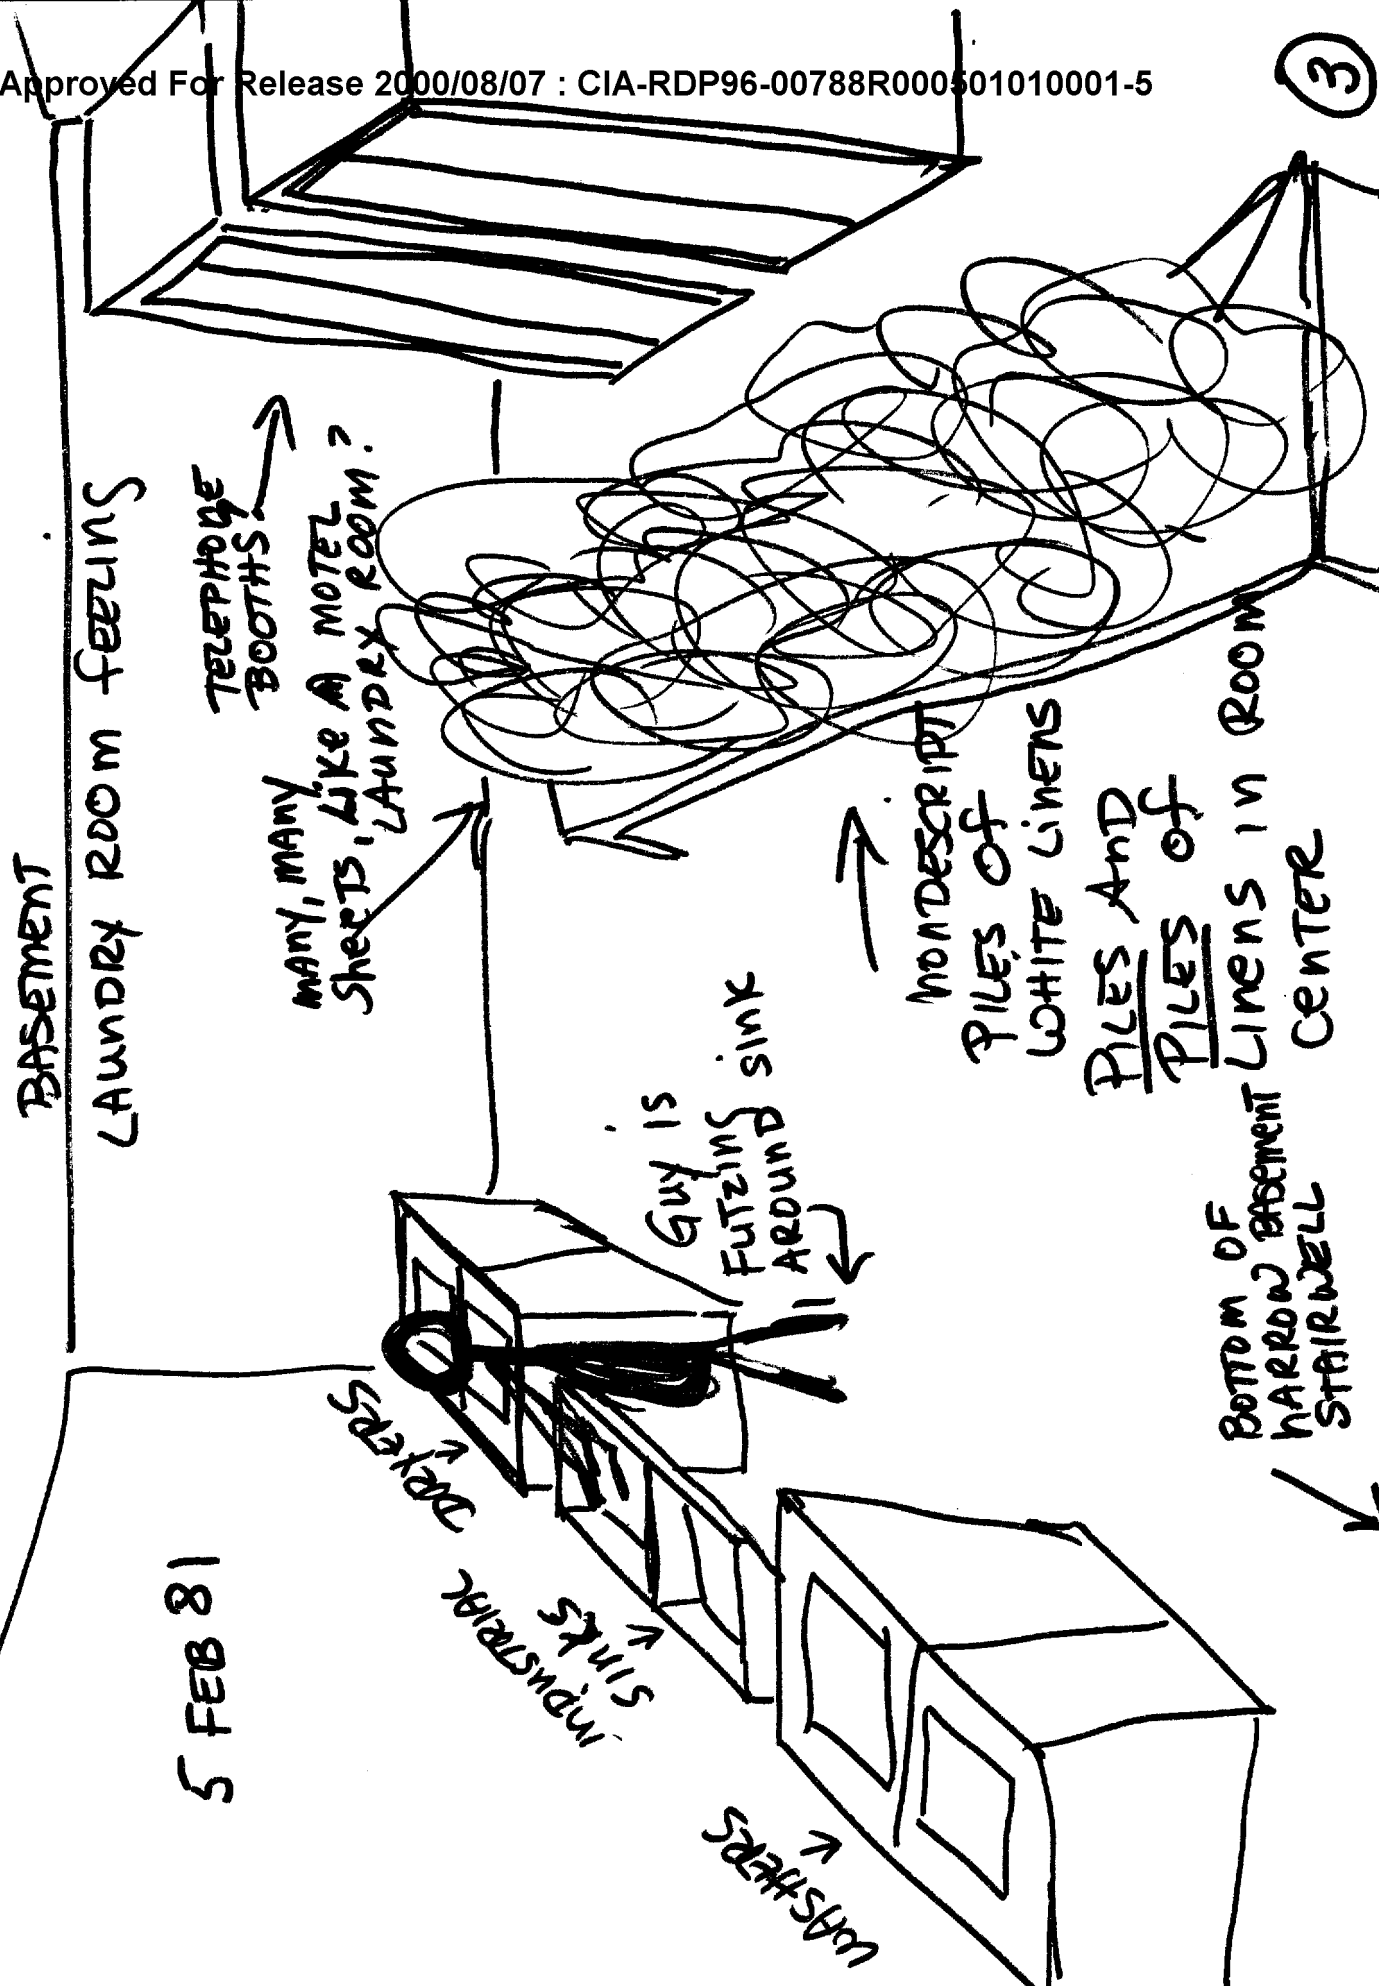 Approved For Release 2000/08/07 : CIA-RDP96-00788R000501010001-5
3
5 FEB 81
BASEMENT
LAUNDRY ROOM FEELING
TELEPHONE
BOOTHS?
MANY, MANY
SHEETS, LIKE A MOTEL
LAUNDRY ROOM?
DRYERS
INDUSTRIAL
SINKS
WASHERS
GUY IS
FUTZING
AROUND SINK
NONDESCRIPT
PILES OF
WHITE LINENS
PILES AND
PILES OF
LINENS IN ROOM
CENTER
BOTTOM OF
NARROW BASEMENT
STAIRWELL